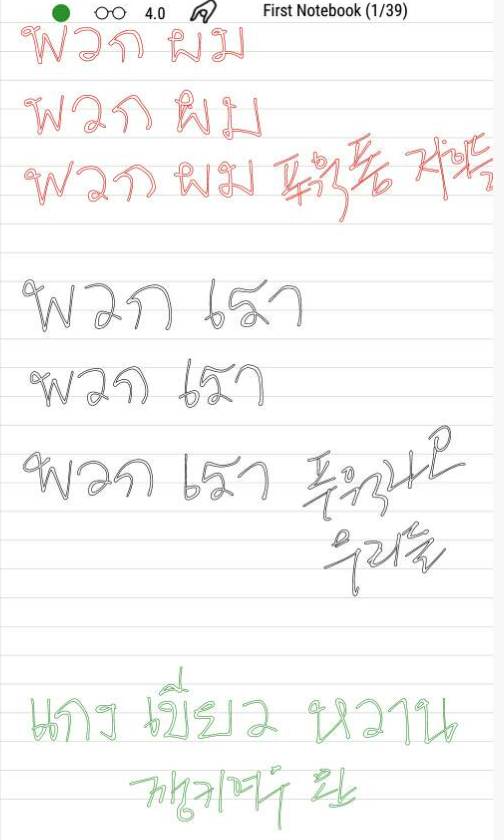 4.0 First Notebook (1/39)
พวก ผม
พวก ผม
พวก ผม 푸웍폼
พวก เรา
พวก เรา
พวก เรา 푸웍라오
우리들
แกง เขียว หวาน
깽키여우 완